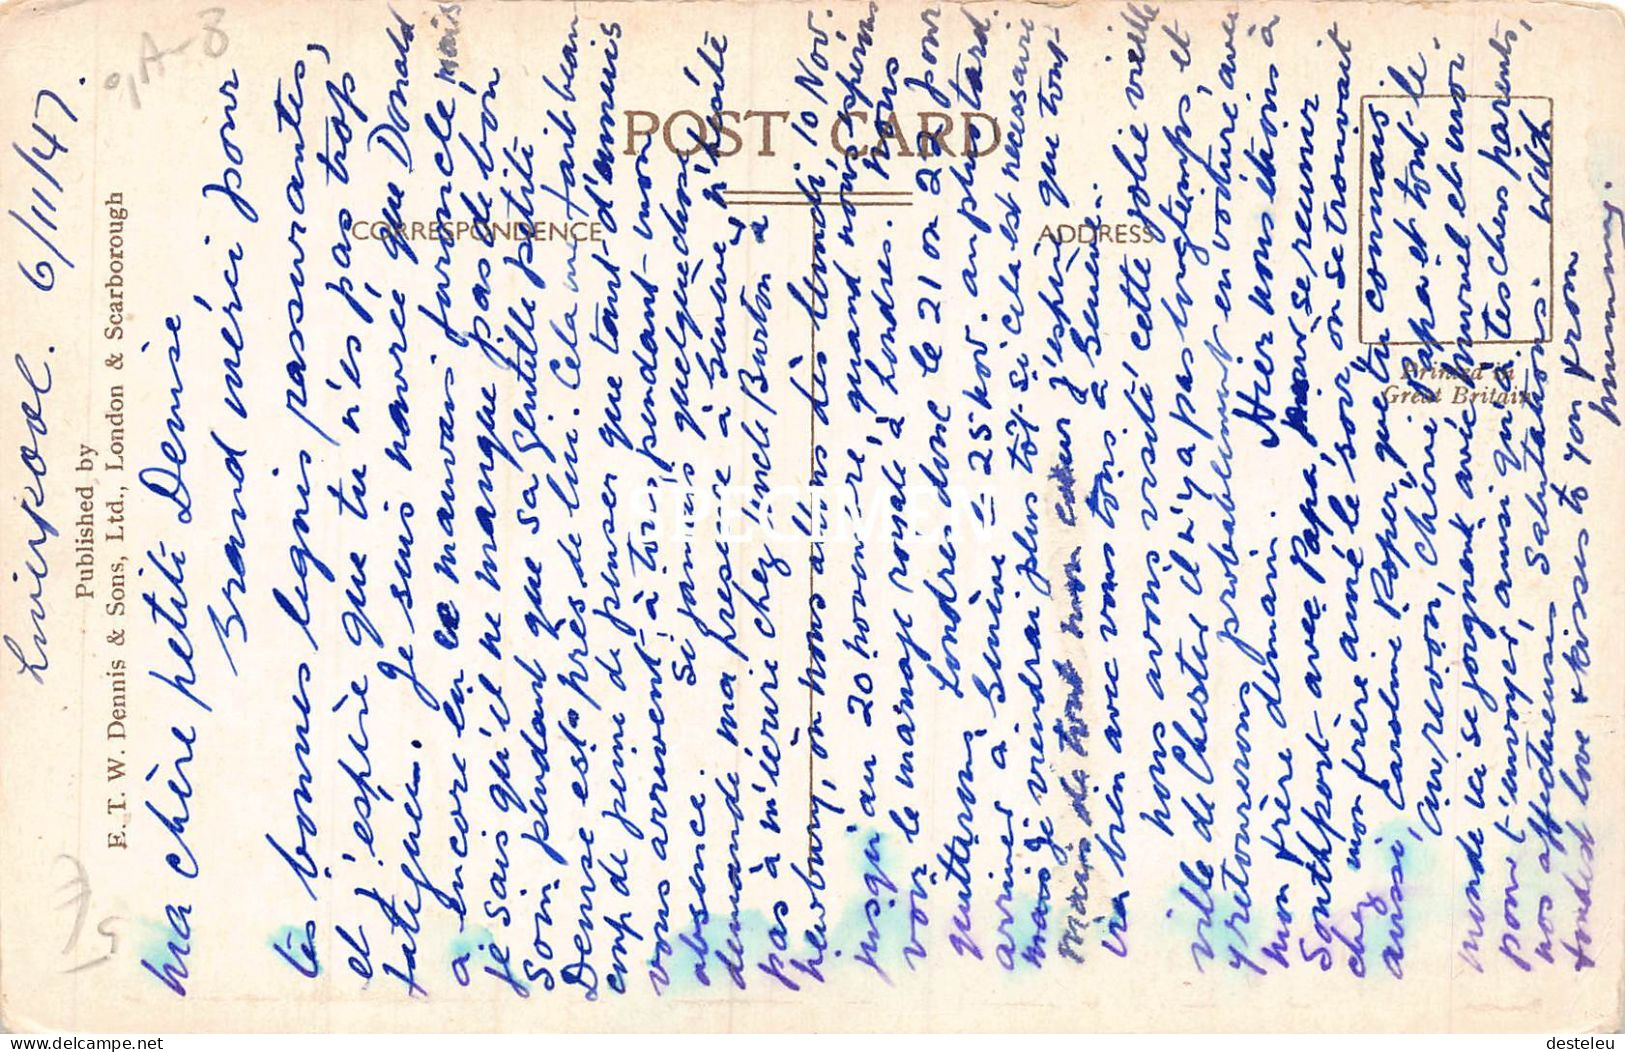 Liverpool. 6/11/47.
%A-8
Published by
E. T. W. Dennis & Sons, Ltd., London & Scarborough
POST CARD
CORRESPONDENCE
ADDRESS
Printed in
Great Britain
Ma chère petite Denise
Grand merci pour
tes bonnes lignes rassurantes,
et j'espère que tu n'es pas trop
fatiguée. Je suis navrée que Donald
a encore eu ce mauvais furoncle, mais
je sais qu'il ne manque pas de bon
soin pendant que sa gentille petite
Denise est près de lui. Cela me fait beau-
coup de peine de penser que tant d'ennuis
vous arrivent à tous pendant mon
absence. Si jamais quelque chose
demande ma présence à Genève n'hésite
pas à m'écrire chez Uncle Burton à
Newbury, où nous allons dès lundi 10 Nov.
jusqu'au 20 novembre, quand nous espérons
voir le mariage royale à Londres. Nous
quitterons Londres donc le 21 ou 22 pour
arriver à Genève le 25 Nov. au plus tard.
mais je viendrai plus tôt si cela est nécessaire
mais de tout mon cœur j'espère que tout
ira bien avec vous tous à Genève.
Nous avons visité cette jolie vieille
ville de Chester il n'y a pas longtemps, et
y retournerons probablement en voiture avec
mon frère demain. Hier nous étions à
Southport avec Papa, pour se réunir
chez mon frère aîné le soir, où se trouvait
aussi, Caroline Roper, que tu connais.
Au revoir, chérie, Papa et tout le
monde ici se joignent avec moi
pour t'envoyer, ainsi qu'à tes chers parents,
nos affectueuses salutations. With
fondest love & kisses to you from
Mummy.
SPECIMEN
delcampe.net
desteleu